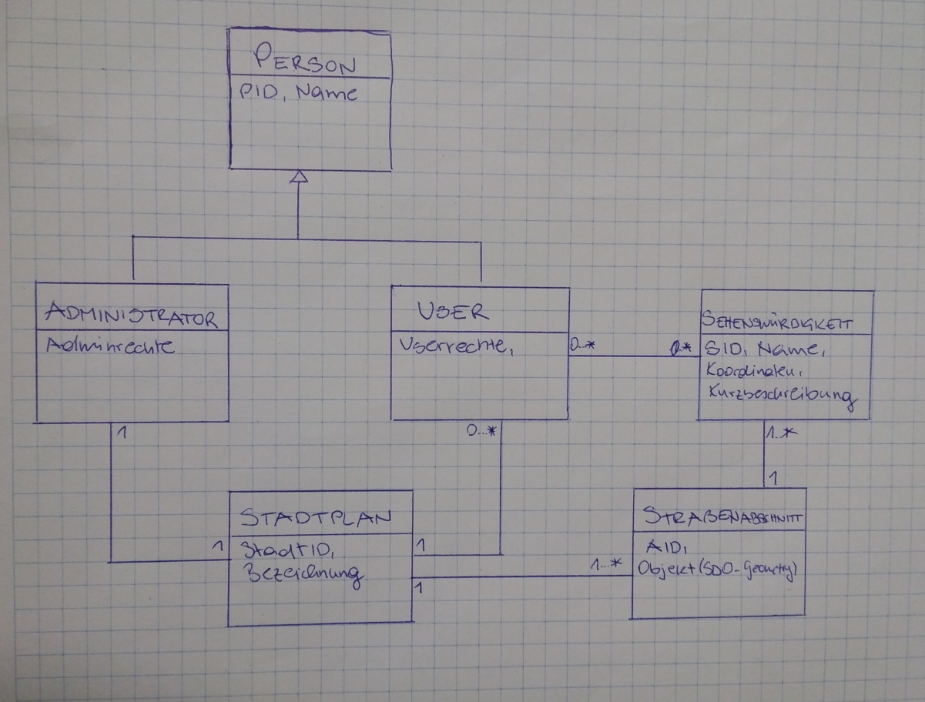 PERSON
PID, Name
ADMINISTRATOR
Adminrechte
USER
Userrechte,
0..*
0..*
SEHENSWÜRDIGKEIT
SID, Name,
Koordinaten,
Kurzbeschreibung
1
0...*
1..*
1
STADTPLAN
StadtID,
Bezeichnung
1
1
1
1..*
STRAßENABSCHNITT
AID,
Objekt (SDO-Geometry)